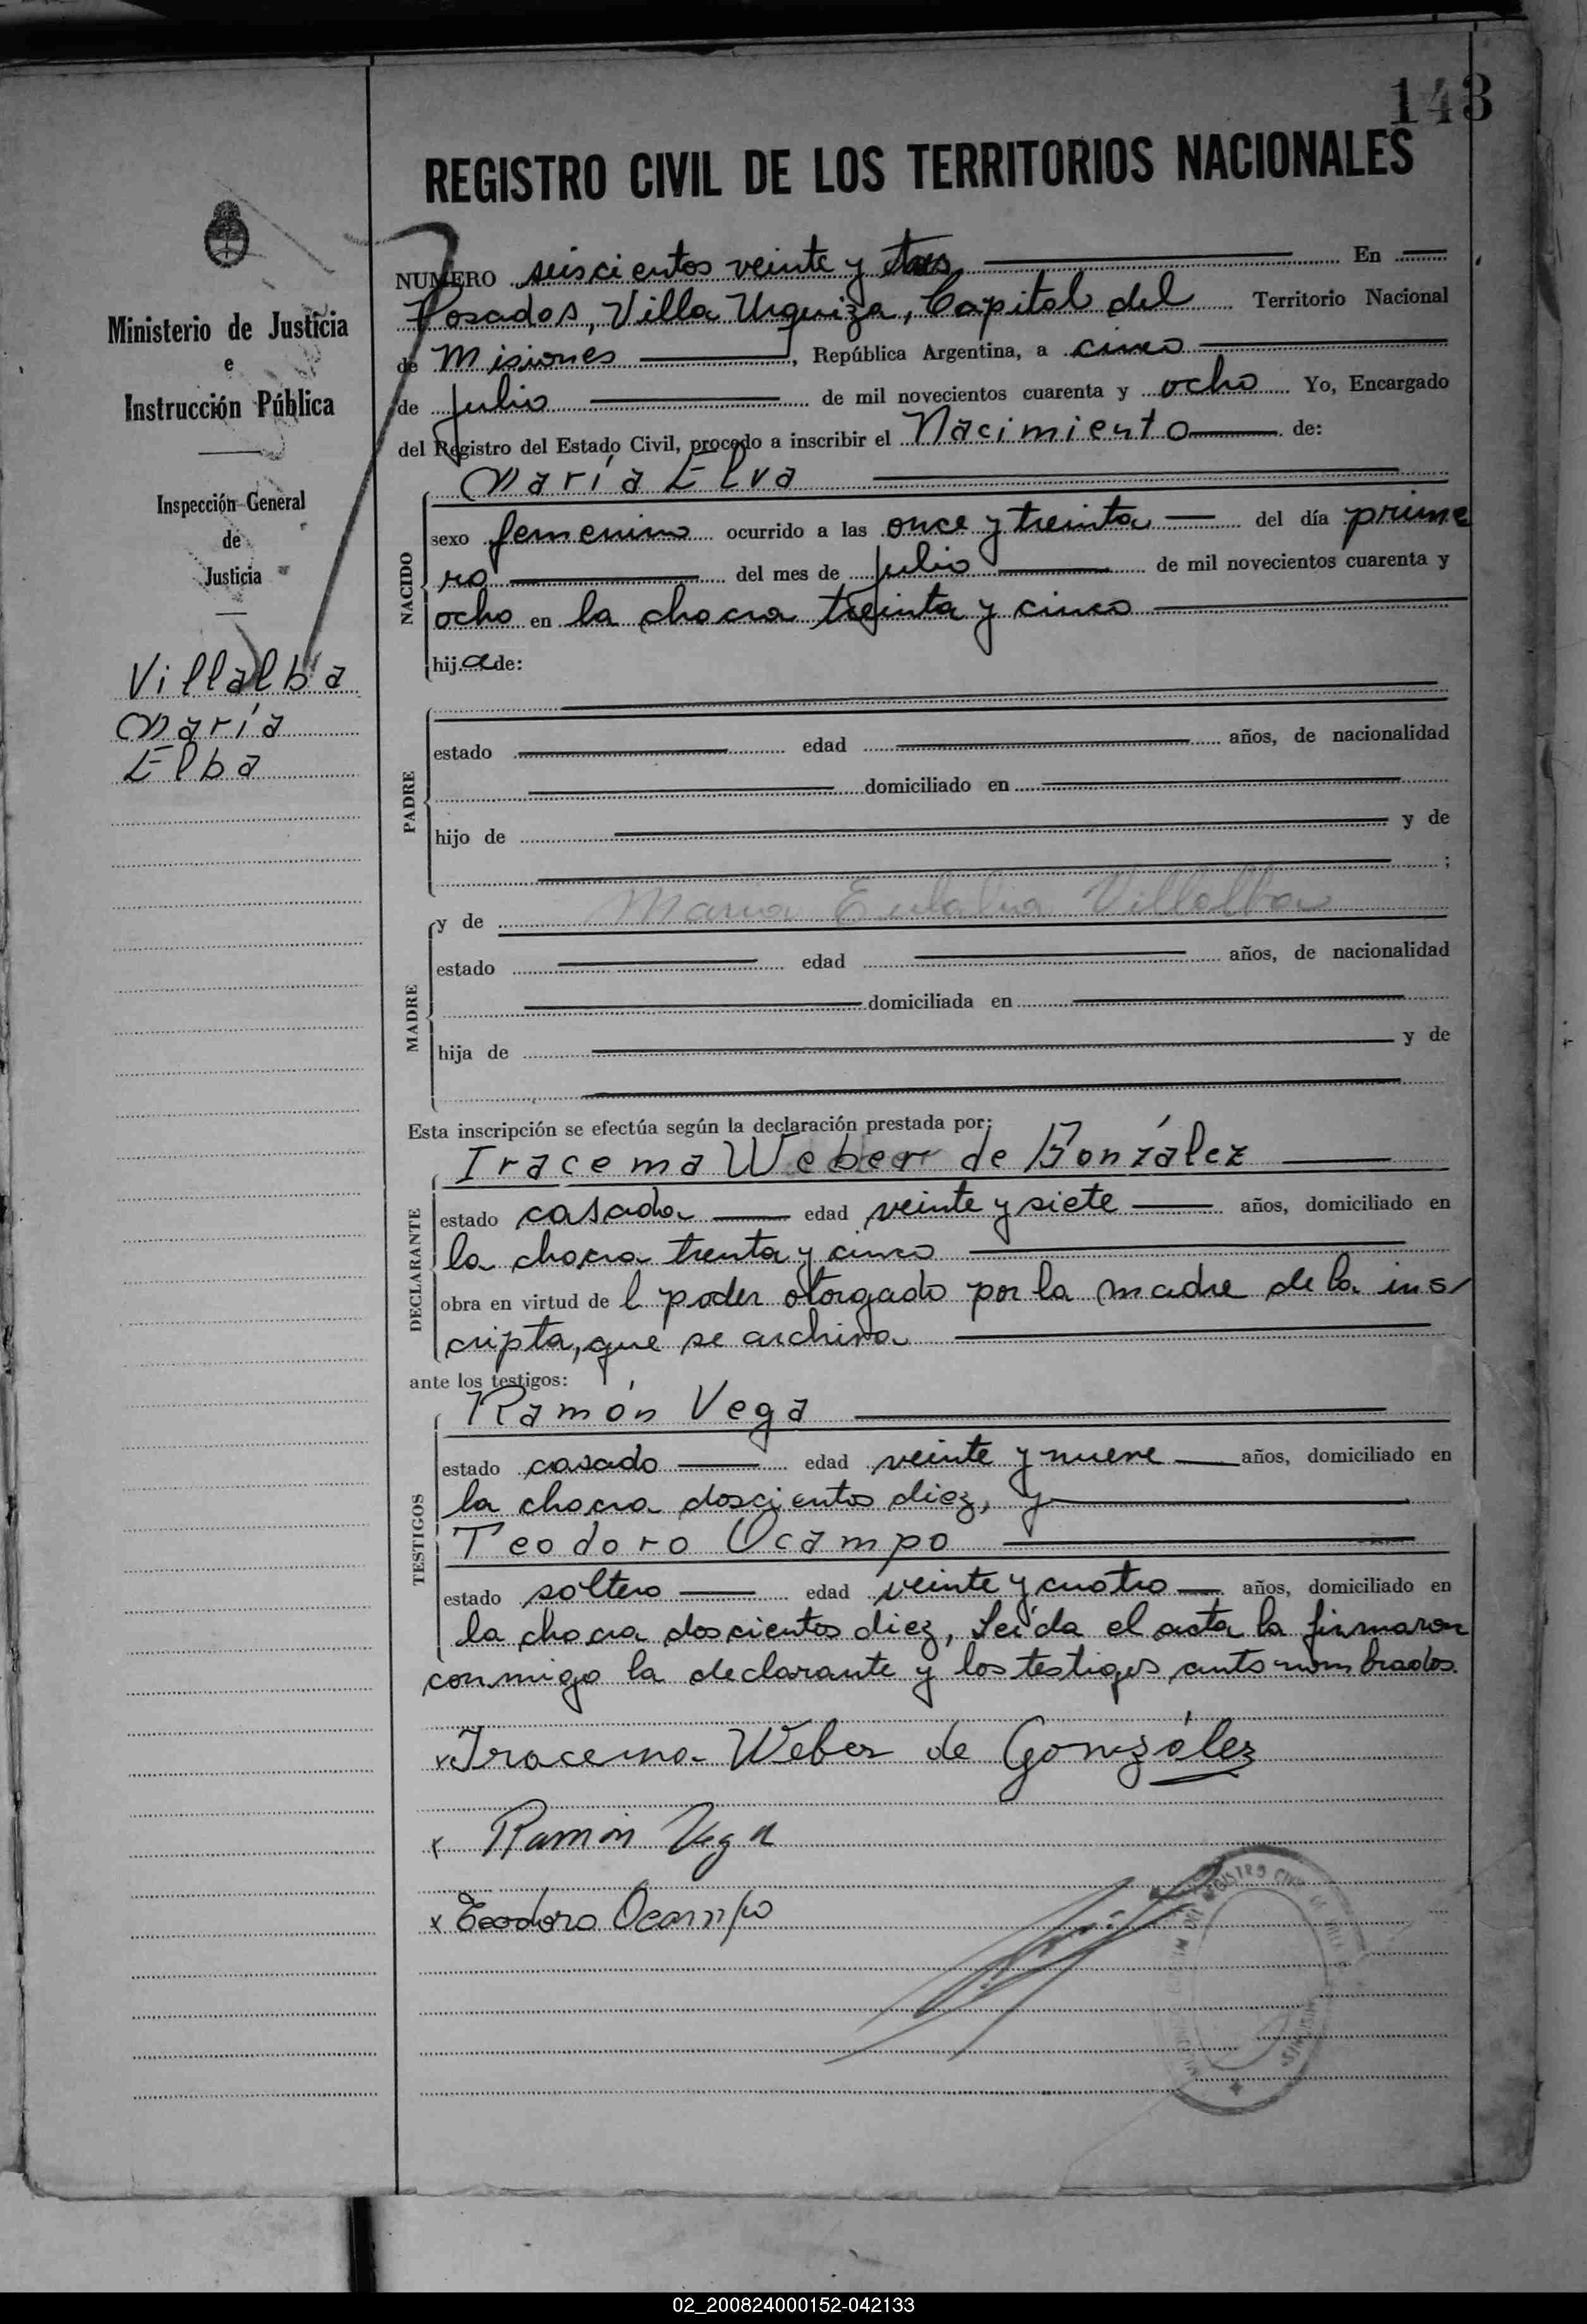 143
REGISTRO CIVIL DE LOS TERRITORIOS NACIONALES
Ministerio de Justicia
e
Instrucción Pública
Inspección General
de
Justicia
Villalba
María
Elba
NUMERO seiscientos veinte y tres En
Posadas, Villa Urquiza, Capital del Territorio Nacional
de Misiones, República Argentina, a cinco
de Julio de mil novecientos cuarenta y ocho Yo, Encargado
del Registro del Estado Civil, procedo a inscribir el Nacimiento de:
María Elva
NACIDO
sexo femenino ocurrido a las once y treinta del día prime
ro del mes de Julio de mil novecientos cuarenta y
ocho en la chacra treinta y cinco
hija de:
PADRE
estado edad años, de nacionalidad
domiciliado en
hijo de y de
;
y de Maria Eulalia Villalba
MADRE
estado edad años, de nacionalidad
domiciliada en
hija de y de
Esta inscripción se efectúa según la declaración prestada por:
Iracema Weber de González
DECLARANTE
estado casada edad veinte y siete años, domiciliado en
la chacra trenta y cinco
obra en virtud de l poder otorgado por la madre de la ins
cripta, que se archiva
ante los testigos:
Ramón Vega
TESTIGOS
estado casado edad veinte y nueve años, domiciliado en
la chacra doscientos diez, y
Teodoro Ocampo
estado soltero edad veinte y cuatro años, domiciliado en
la chacra doscientos diez, Leída el acta la firmaron
conmigo la declarante y los testigos antenombrados.
x Iracema Weber de González
x Ramón Vega
x Teodoro Ocampo
REGISTRO CIVIL
MISIONES
02_200824000152-042133